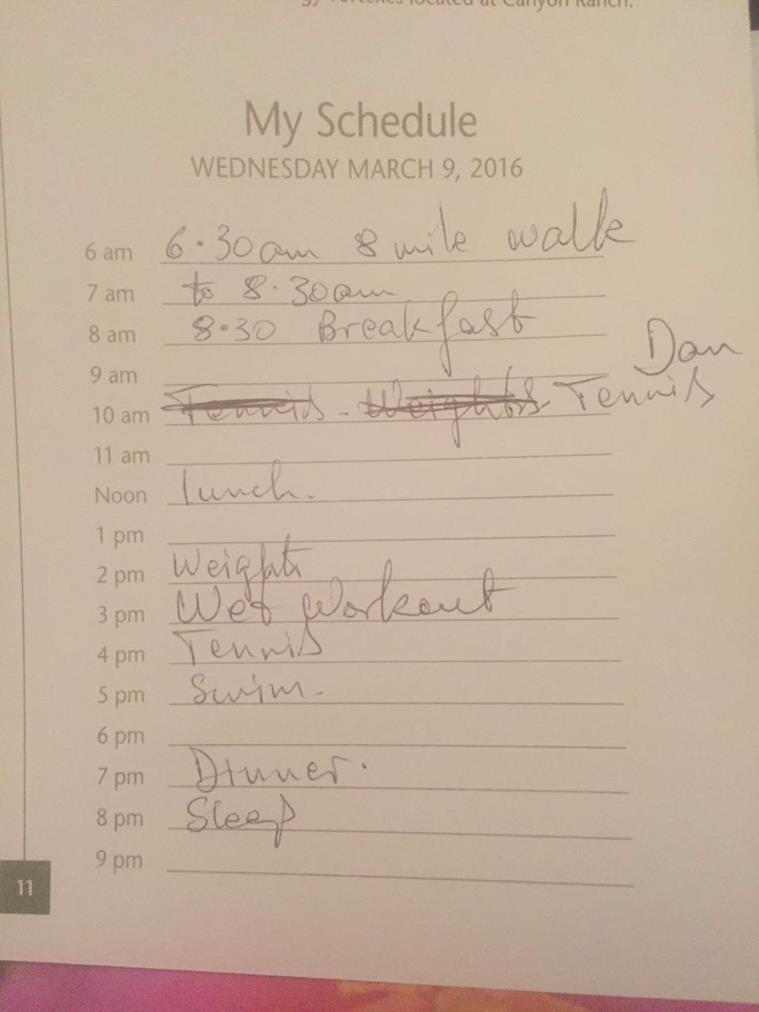 located at Canyon Ranch.
My Schedule
WEDNESDAY MARCH 9, 2016
6 am 6.30am 8 mile walk
7 am to 8.30am
8 am 8.30 Breakfast
9 am Dan
10 am Tennis - Weights Tennis
11 am
Noon lunch.
1 pm
2 pm Weights
3 pm Wet Workout
4 pm Tennis
5 pm Swim.
6 pm
7 pm Dinner.
8 pm Sleep
9 pm
11